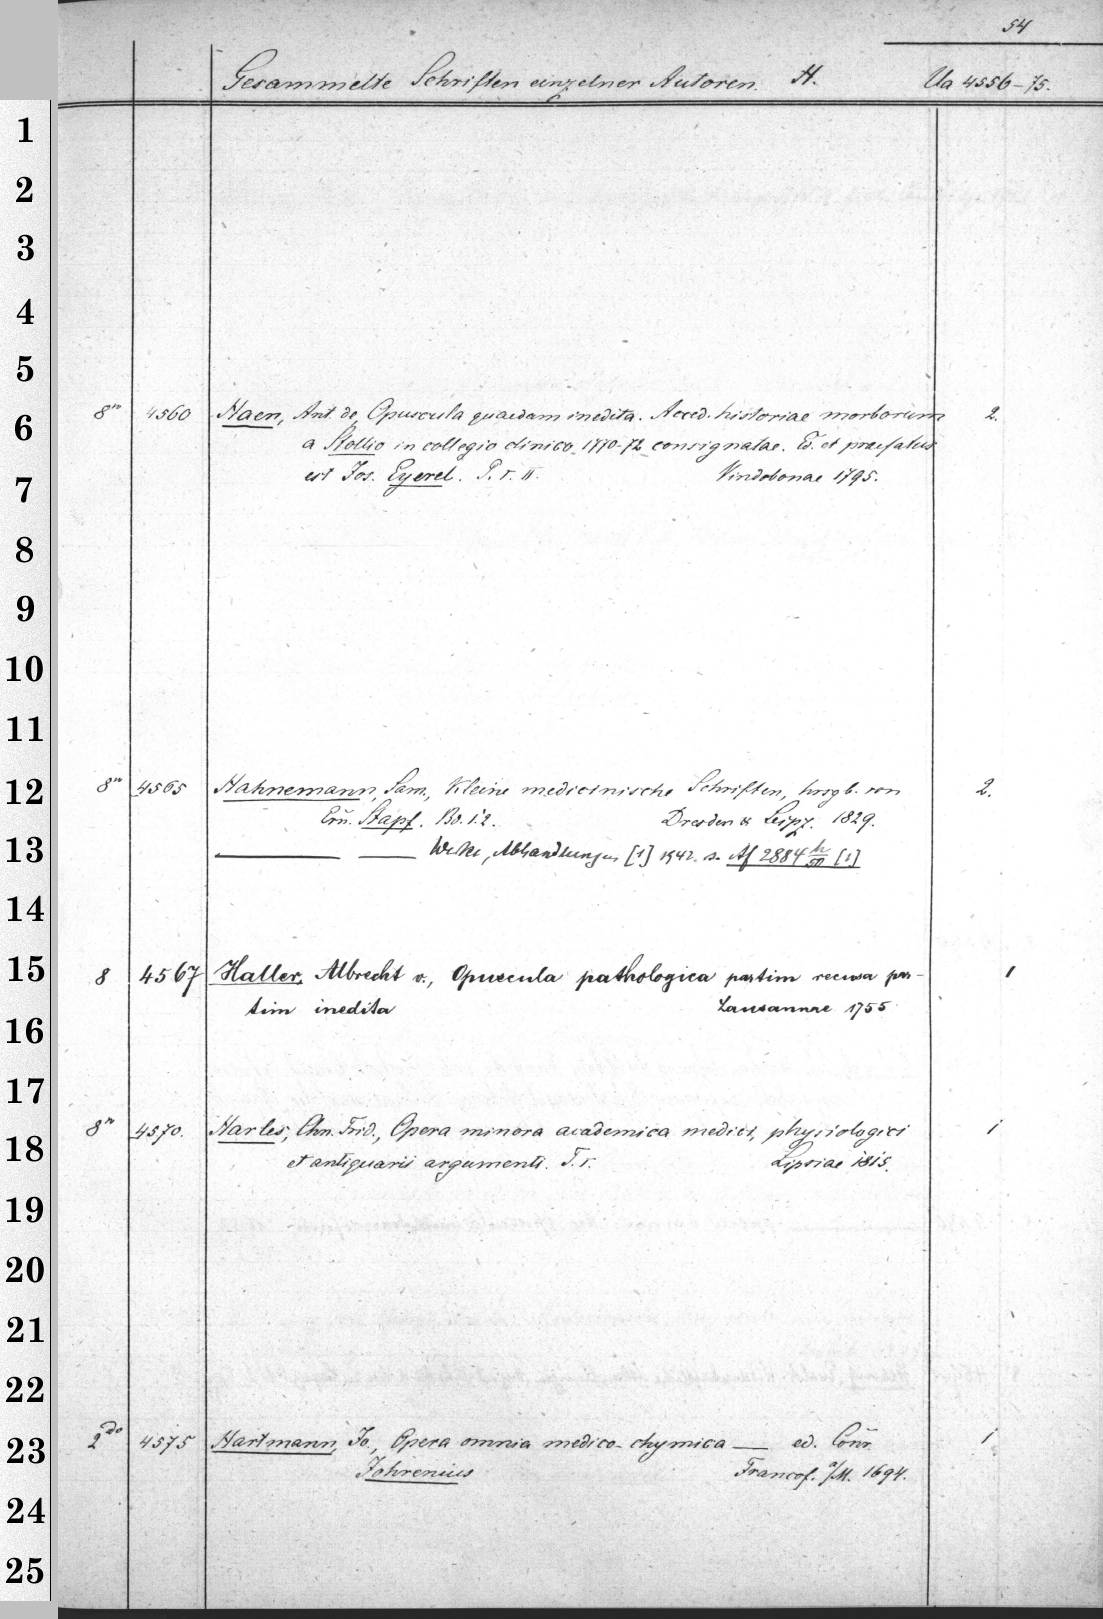 54
Gesammelte Schriften einzelner Autoren. H. Ua 4556-75.
1
2
3
4
5
8vo 4560 Haen, Ant. de, Opuscula quaedam inedita. Acced. historiae morborum 2.
6
a Stollio in collegio clinico 1770-72 consignatae. Ed. et praefatus
7
est Jos. Eyerel. P. I. II. Vindobonae 1795.
8
9
10
11
8vo 4565 Hahnemann, Sam., Kleine medicinische Schriften, hrsgb. von 2.
12
Ern. Stapf. Bd. 1.2. Dresden & Leipz. 1829.
13
——— —— Werke, Abhandlungen [1] 1942. s. Af 2884 h/50 [1]
14
15
8 4567 Haller, Albrecht v., Opuscula pathologica partim recusa par- 1
16
tim inedita Lausannae 1755
17
8vo 4570. Harles, Chn. Frid., Opera minora academica medici, physiologici 1
18
et antiquarii argumenti. T. I. Lipsiae 1815.
19
20
21
22
2do 4575 Hartmann, Jo., Opera omnia medico-chymica —— ed. Conr. 1
23
Johrenius Francof. a/M. 1694.
24
25